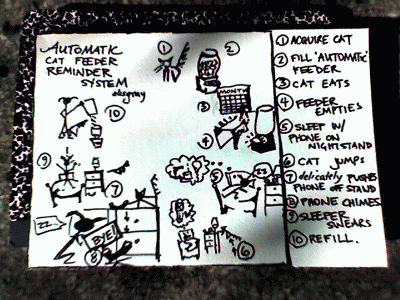 AUTOMATIC
CAT FEEDER
REMINDER
SYSTEM
① ②
MONTH
③
④
⑩
⑨
⑦
⑤
22..
BYE!
⑧
⑥
① ACQUIRE CAT
② FILL 'AUTOMATIC'
FEEDER
③ CAT EATS
④ FEEDER
EMPTIES
⑤ SLEEP W/
PHONE ON
NIGHTSTAND
⑥ CAT JUMPS
⑦ delicately PUSHES
PHONE OFF STAND
⑧ PHONE CHIMES
⑨ SLEEPER
SWEARS
⑩ REFILL.